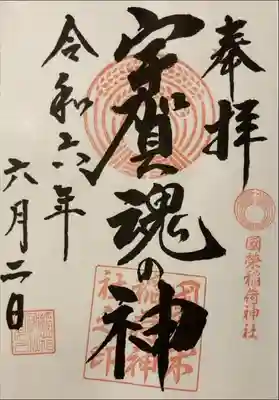 奉拝
國榮稲荷神社
宇賀魂の神
令和六年
六月二日